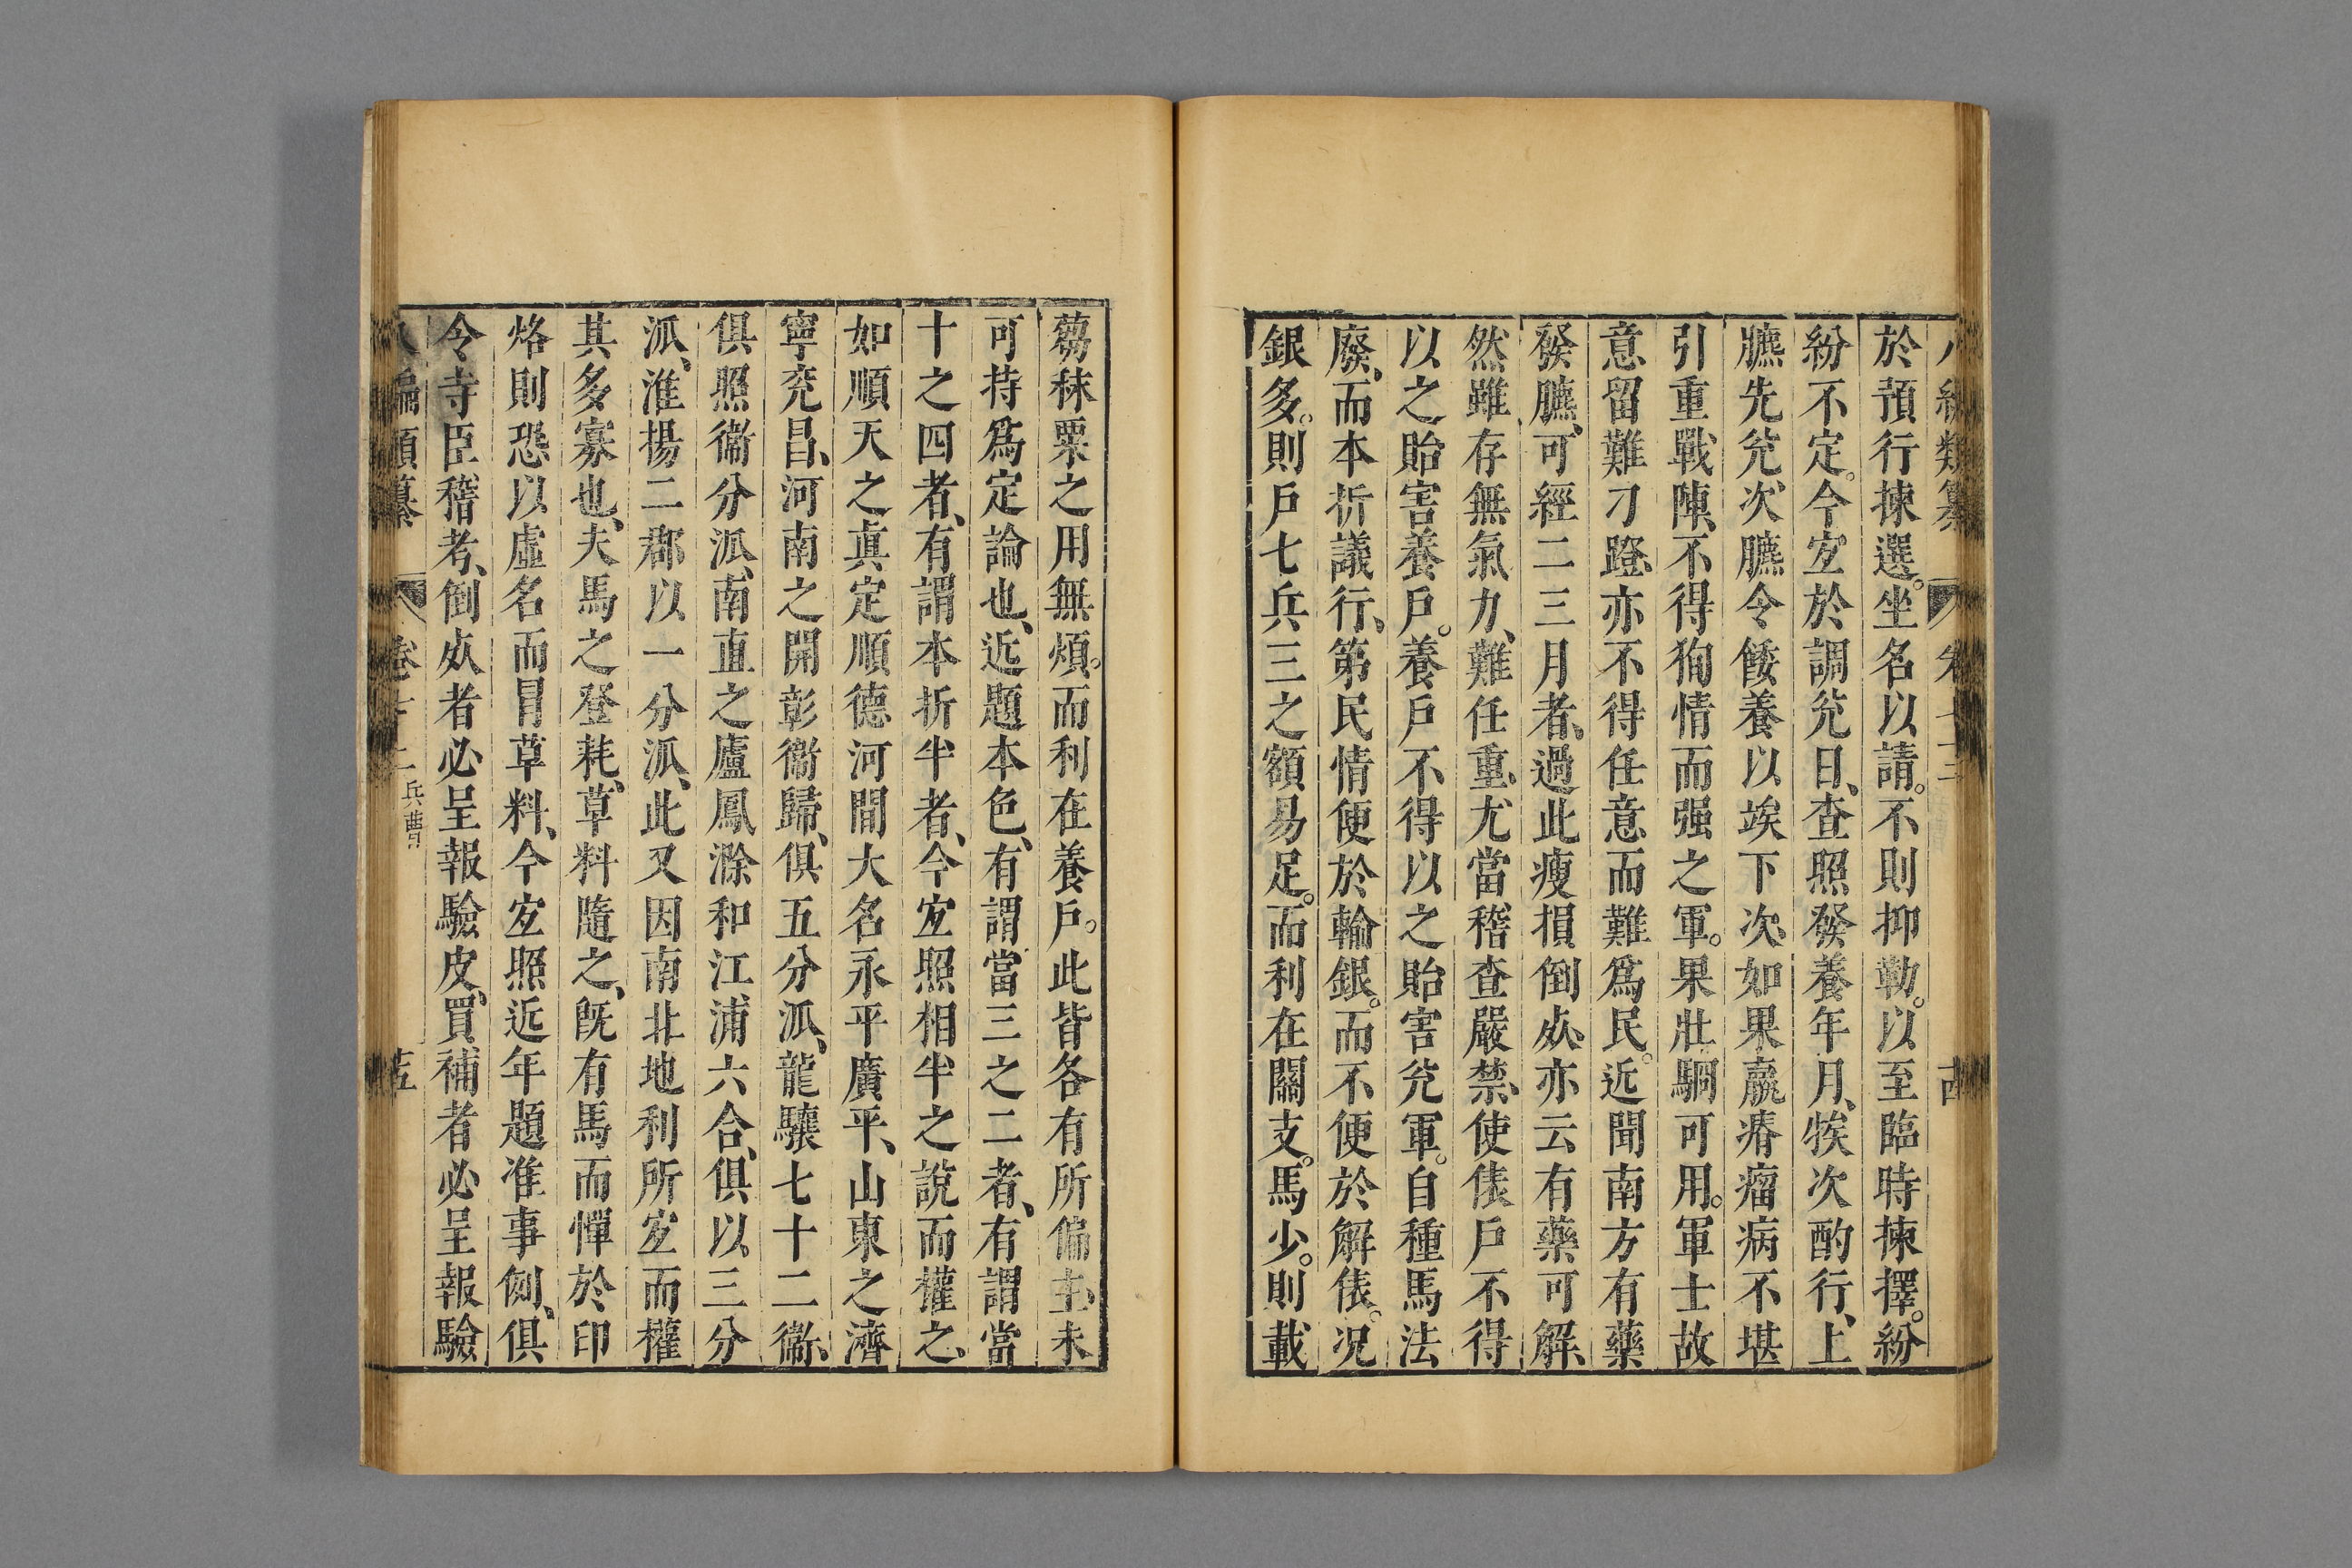 於預行揀選。坐名以請。不則抑勒。以至臨時揀擇。紛
紛不定。今宐於調兊日、查照發養年月、挨次酌行、上
臕先兊、次臕令餧養以竢下次、如果羸瘠瘤病不堪
引重戰陣、不得狥情而强之軍。果壯駉可用。軍士故
意留難刁蹬、亦不得任意而難爲民。近聞南方有藥
發臕、可經二三月者、過此瘦損倒𣦸、亦云有藥可解、
然雖存無氣力、難任重、尤當稽查嚴禁、使俵戶不得
以之貽害養戶。養戶不得以之貽害兊軍。自種馬法
廢、而本折議行、第民情便於輸銀。而不便於解俵。况
銀多。則戶七兵三之額易足。而利在關支。馬少。則載
蒭秣粟之用無煩。而利在養戶。此皆各有所偏主、未
可持爲定論也、近題本色、有謂當三之二者、有謂當
十之四者、有謂本折半者、今宐照相半之說而權之、
如順天之真定順德河間大名永平廣平、山東之濟
寧兖昌、河南之開彰衞歸、俱五分派、龍驤七十二衞、
俱照衞分派、南直之廬鳳滁和江浦六合、俱以三分
派、淮揚二郡以一分派、此又因南北地利所宐而權
其多寡也、夫馬之登耗、草料隨之、既有馬而憚於印
烙則恐以虛名而冒草料、今宐照近年題准事例、俱
令寺臣稽考、倒𣦸者必呈報驗皮、買補者必呈報驗
八編類纂 卷 兵曹